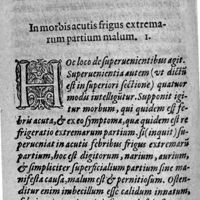 In morbis acutis frigus extrema-
rum partium malum. 1.
HOc loco de superuenientibus agit.
Superuenientia autem (vt dictū
est in superiori sectione) quatuor
modis intelligūtur. Supponit igi
tur morbum, qui quidem est fe
bris acuta, & ex eo symptoma, qua quidem est re
frigeratio extremarum partium. si (inquit) su-
perueniat in acutis febribus frigus extremarū
partium, hoc est digitorum, narium, aurium,
& simpliciter superficialium partium sine ma-
nifesta causa, malum est & pernitiosum. Osten-
ditur enim imbecillum esse calidum innatum,